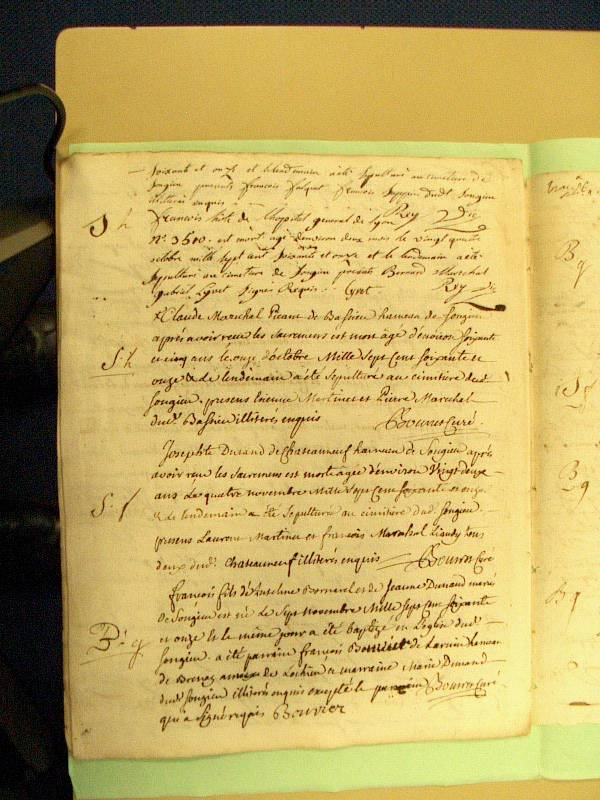 soixante et onze et le lendemain a été sepulturé au cimetiere de
Songieu presents françois françois Songieu
illiterés enquis
S h
françois hôte de l'hopital general de Lyon Rey Vic
N° 3610. est mort agé d'environ deux mois le vingt quatre
octobre mille sept cent soixante et onze et le lendemain a été
sepulturé au cimetiere de Songieu presents Bernard Marechal
gabriel Lyvet signés Requis Lyvet Rey Vic
Claude Marechal Picant de Bassieu hameau de Songieu
S. h
après avoir reçu les sacremens est mort agé d'environ soixante
et cinq ans le onze d'octobre Mille Sept Cent Soixante et
onze & le lendemain a été sepulturé au cimitière dud.
Songieu. presens Etienne Martinet et Pierre Marechal
dud. Bassieu illiterés enquis Bouvier Curé.
Josephte Durand de Chateauneuf hameau de Songieu après
avoir reçu les sacremens est morte agée d'environ Vingt deux
S. f
ans le quatre novembre Mille Sept Cent Soixante et onze
& le lendemain a été sepulturée au cimitière dud. Songieu
presens Laurent Martinet et françois Marechal tous
deux dud. Chateauneuf illiterés enquis Bouvier Curé
françois fils d'Anselme et de Jeanne Durand mariés
de Songieu est né le sept novembre Mille Sept Cent Soixante
B. g
et onze & le même jour a été baptizé en l'eglise dud.
Songieu. a été parrain françois Bouvier de hameau
de de Lochieu & marraine Marie Durand
dud. Songieu illiterés enquis excepté le parrain Bouvier Curé
qui a signé requis Bouvier
B
g
S f
B
g
B g